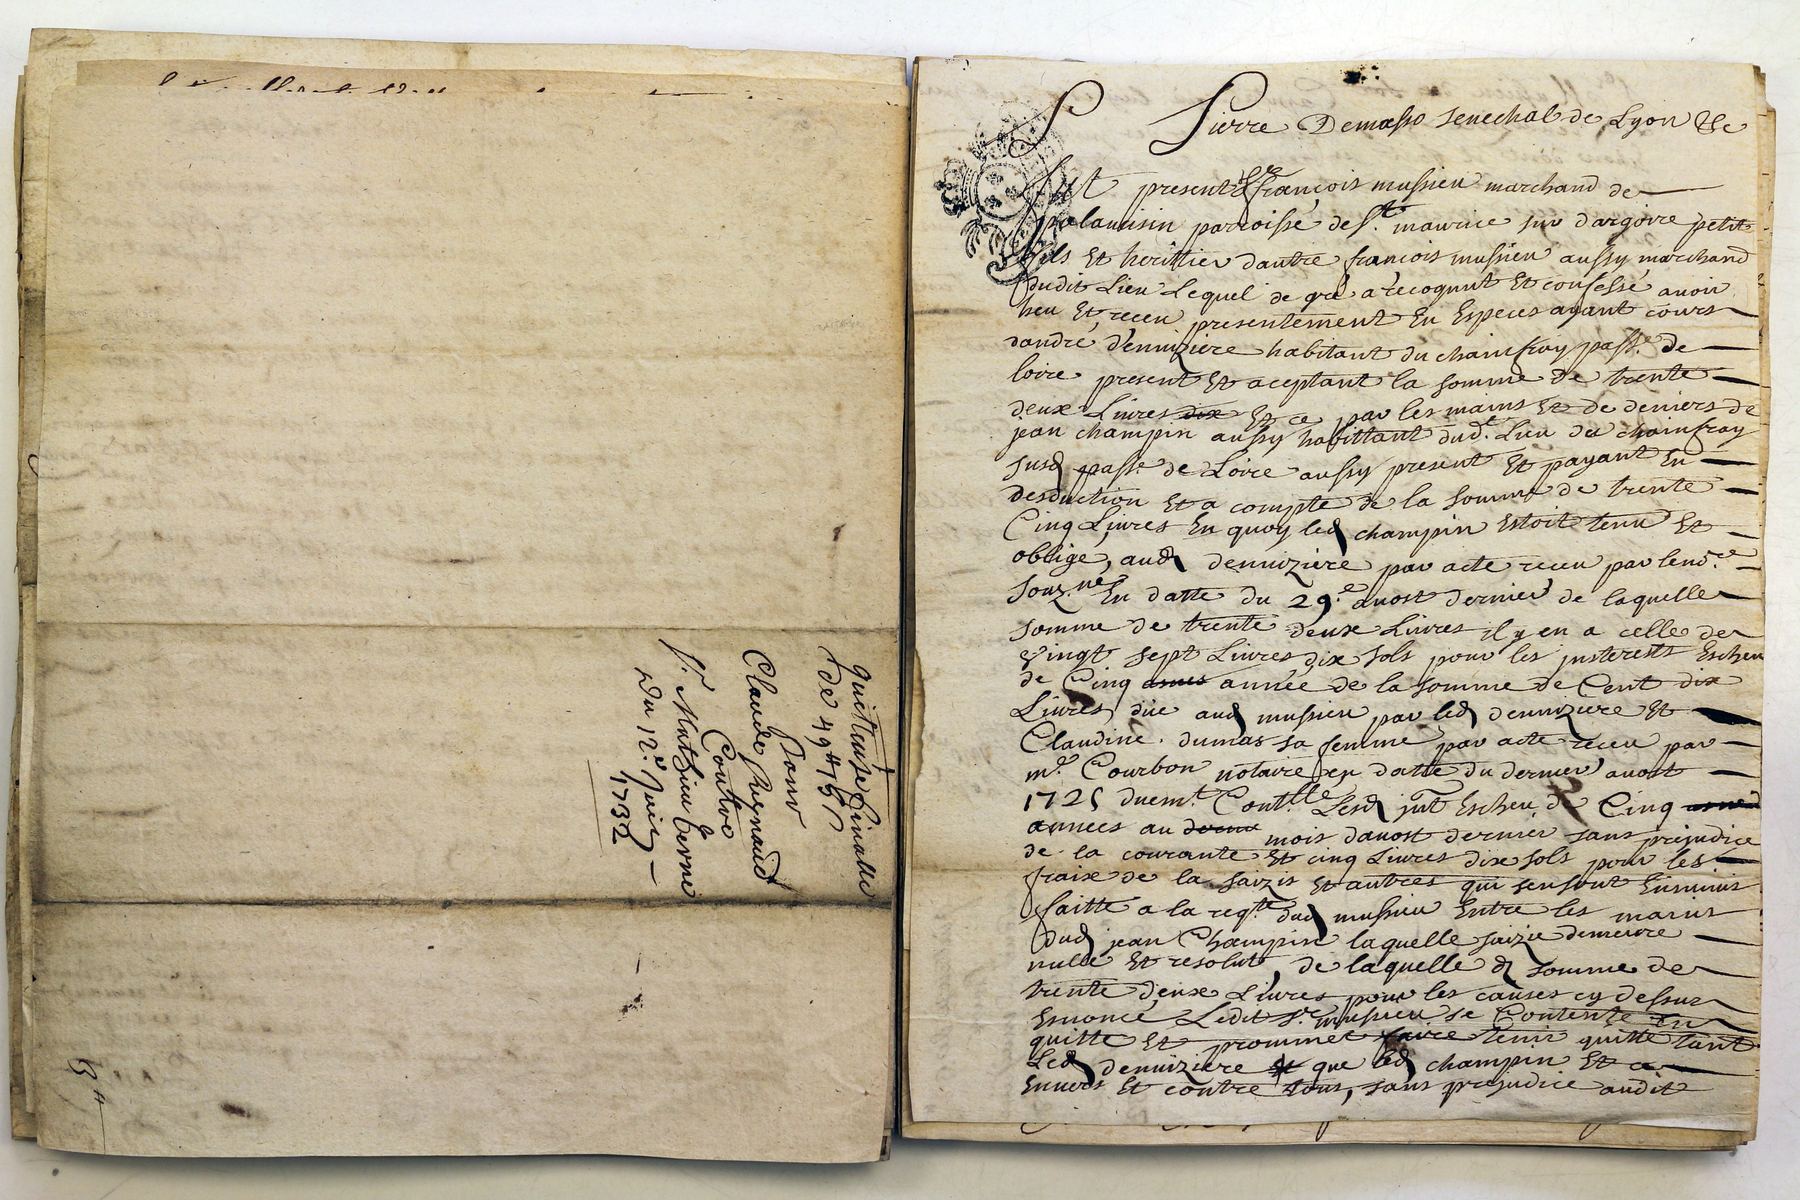 quittance finalle
de 49ᵗᵗ 15ˢ
Pour
Claude Reynaud
Contre
Sʳ. Mathieu berne
Du 12ᵉ. Juin
1732
Pierre Demasso senechal de Lyon &c
fut present sʳ françois mussieu marchand de
palauisin parroisse de Sᵗ. maurice sur dargoire petit
fils Et herittier dautre francois mussieu aussy marchand
dudit Lieu Lequel de gré a recognut Et confessé auoir
heu Et receu presentement En Especes ayant cours
dandré denuiziere habitant du chainfray passᵉ. de
loire present Et aceptant la somme de trente
deux Liures dix Et ce par les mains Et de deniers de
jean champin aussy habittant dudᵗ. Lieu du chainfray
susd passe de Loire aussy present Et payant En
desduction Et a compte de la somme de trente
Cinq Liures En quoy led champin Estoit tenu Et
obligé, aud denuiziere par acte receu par lenoʳᵉ
souz.né En datte du 29.ᵉ aoust dernier de laquelle
somme de trente deux Liures il y en a celle de
Vingt sept Liures dix sols pour les jnterests Escheu
de Cinq année de la somme de Cent dix
Liures düe aud mussieu par led denuiziere Et
Claudine dumas sa femme par acte receu par
mᵉ. Courbon notaire en datte du dernier aoust
1725 duemᵗ. Contˡˡᵉ Lesd jnt Escheu de Cinq
années au mois daoust dernier sans prejudice
de la courante Et cinq Liures dix sols pour les
fraix de la saizie Et autres qui sensont Ensuiuis
faitte a la reqᵗᵉ. dud mussieu Entre les mains
dud jean Champin laquelle saizie demeure
nulle Et resolut, de laquelle d somme de
trente deux Liures pour les causes cy dessus
Enoncé Ledit sʳ. mussieu se Contente En
quitte Et prommet faire tenir quitte tant
Led denuiziere que led champin Et ce
Enuers Et contre tous, sans prejudice audit